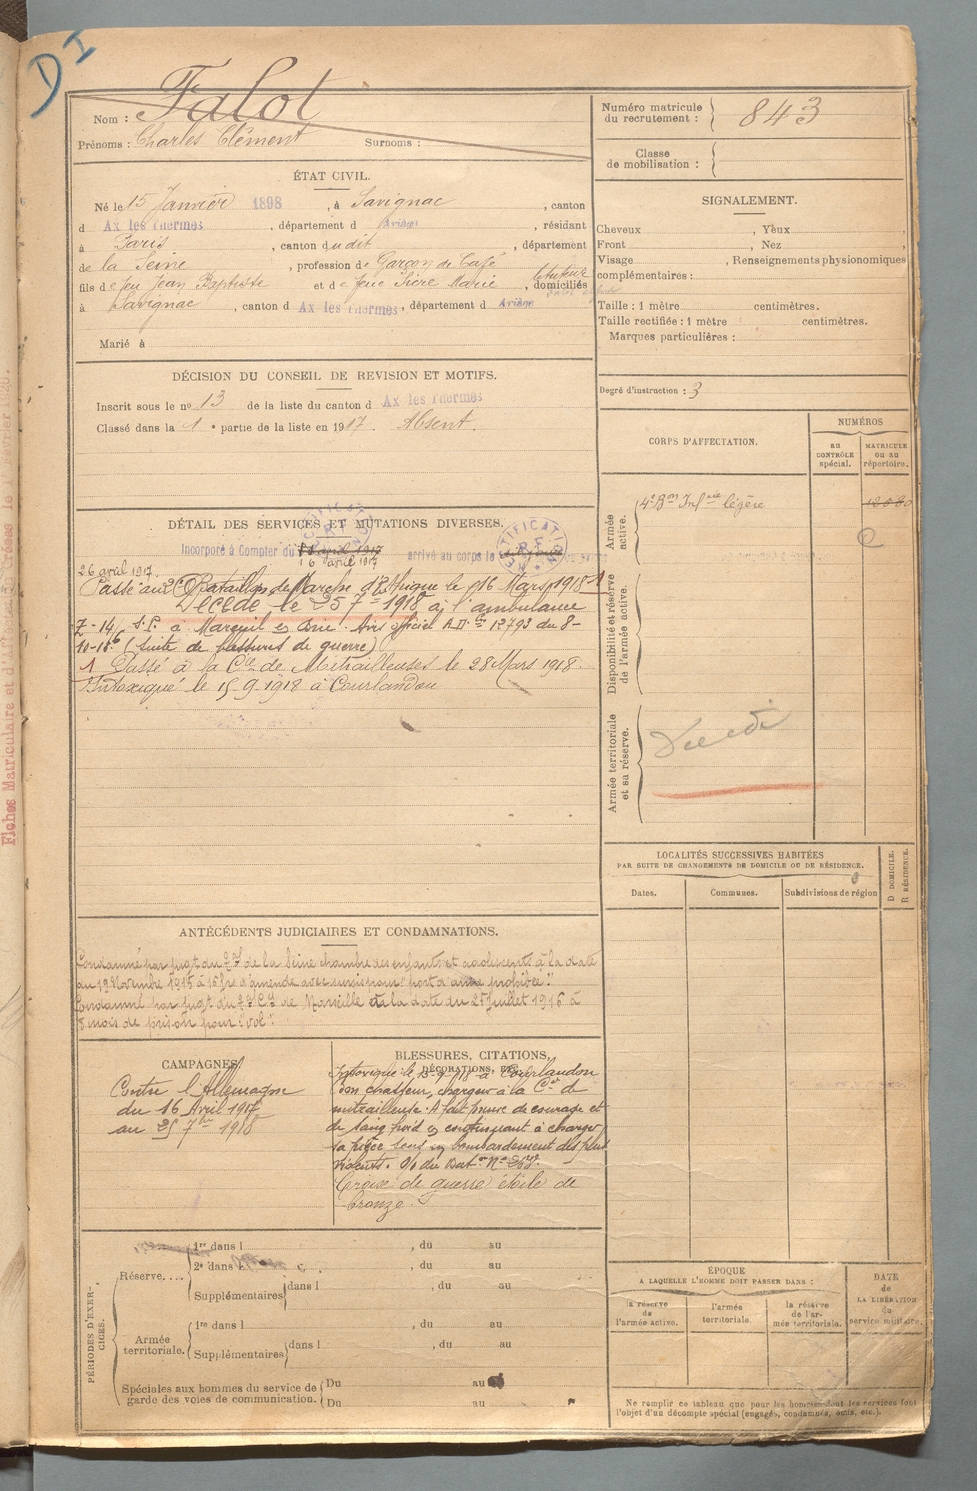 DI
Falot
Nom :
Prénoms : Charles Clément Surnoms :
Numéro matricule
du recrutement : 843
Classe
de mobilisation :
ÉTAT CIVIL.
Né le 15 Janvier 1898, à Savignac, canton
d Ax les Thermes, département d Ariège, résidant
à Paris, canton dudit, département
de la Seine, profession de Garçon de Café
fils de feu Jean Baptiste et de feue Sicre Marie, domiciliés
à Savignac, canton d Ax les Thermes, département d Ariège
Marié à
SIGNALEMENT.
Cheveux , Yeux ,
Front , Nez ,
Visage , Renseignements physionomiques
complémentaires :
Taille : 1 mètre centimètres.
Taille rectifiée : 1 mètre centimètres.
Marques particulières :
Degré d'instruction : 3
DÉCISION DU CONSEIL DE REVISION ET MOTIFS.
Inscrit sous le no 13 de la liste du canton d Ax les Thermes
Classé dans la 1 e partie de la liste en 1917. Absent.
CORPS D'AFFECTATION.
NUMÉROS
au
CONTRÔLE
spécial.
MATRICULE
ou au
répertoire.
Armée
active.
4e Bon Infrie légère
Disponibilité et réserve
de l'armée active.
Armée territoriale
et sa réserve.
Décédé
DÉTAIL DES SERVICES ET MUTATIONS DIVERSES.
RECTIFICATION
R F
RECTIFICATION
R F
Incorporé à Compter du 11 april 1917 arrivé au corps le
16 april 1917
26 avril 1917.
Passé au 3e Bataillon de Marche d'Afrique le 16 Mars 1918 1
Décédé le 25 7bre 1918 à l'ambulance
Z-14, S.P. à Mareuil en Brie. Avis officiel A.D. 12793 du 8-
10-18 (suite de blessures de guerre)
1 Passé à la Cie de Mitrailleuses le 28 Mars 1918.
Intoxiqué le 15-9-1918 à Courlandon
ANTÉCÉDENTS JUDICIAIRES ET CONDAMNATIONS.
Condamné par jugt du de la Seine chambre des enfants et adolescents à la date
du 19 Novembre 1915 à 16frs d'amende avec sursis pour "port d'arme prohibée".
Condamné par jugt du de Marseille à la date du 25 Juillet 1916 à
8 mois de prison pour "vol".
CAMPAGNES
Contre l'Allemagne
du 16 Avril 1917
au 25 7bre 1918
BLESSURES, CITATIONS,
DÉCORATIONS, ETC.
Intoxiqué le 15-9-918 à Courlandon
Bon chasseur, chargeur à la Cie de
mitrailleuse. A fait preuve de courage et
de sang froid en continuant à charger
sa pièce sous un bombardement des plus
violents. O/ du Baton No 267.
Croix de guerre étoile de
bronze.
LOCALITÉS SUCCESSIVES HABITÉES
PAR SUITE DE CHANGEMENTS DE DOMICILE OU DE RÉSIDENCE.
Dates. Communes. Subdivisions de région
D DOMICILE.
R RÉSIDENCE.
PÉRIODES D'EXER-
CICES.
Réserve....
1re dans l , du au
2e dans l , du au
Supplémentaires dans l , du au
Armée
territoriale.
1re dans l , du au
Supplémentaires dans l , du au
Spéciales aux hommes du service de
garde des voies de communication.
Du au
Du au
ÉPOQUE
A LAQUELLE L'HOMME DOIT PASSER DANS :
la réserve
de
l'armée active.
l'armée
territoriale.
la réserve
de l'ar-
mée territoriale.
DATE
de
LA LIBÉRATION
du
service militaire.
Ne remplir ce tableau que pour les hommes dont les services font
l'objet d'un décompte spécial (engagés, condamnés, omis, etc.).